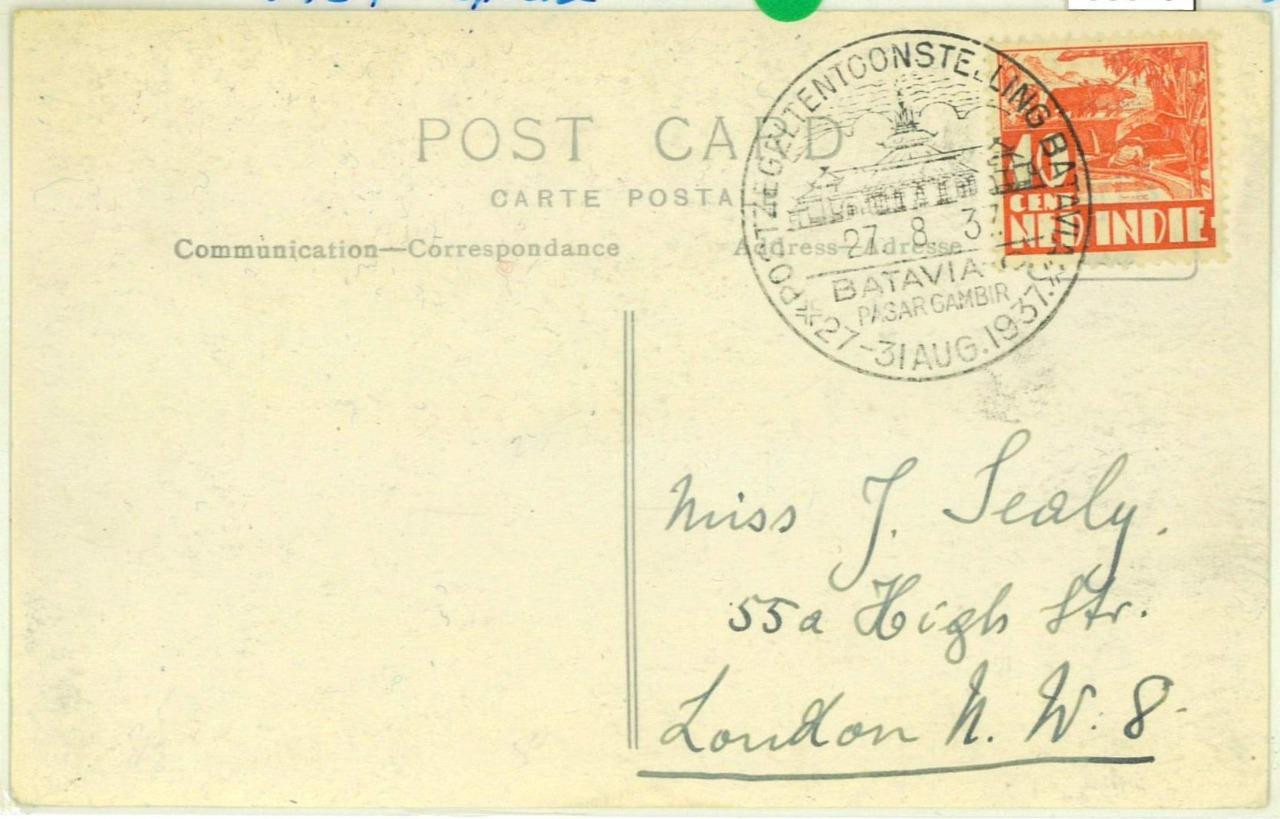 POST CARD
CARTE POSTA
Communication—Correspondance
Address—Adresse
POSTZEGELTENTOONSTELLING BATAVIA
27 8 37
BATAVIA
PASAR GAMBIR
27-31 AUG. 1937.
10
CENT
NED INDIE
Miss J. Sealy.
55a High Str.
London N. W. 8